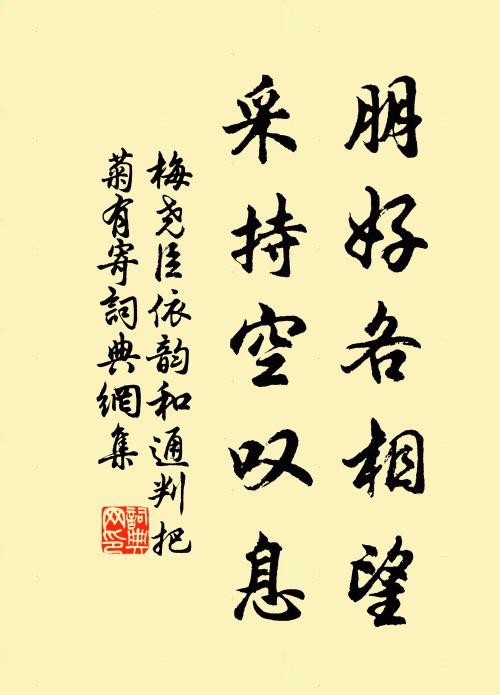 朋好各相望
采持空叹息
梅尧臣依韵和通判把
菊有寄詞典網集
詞典
网印